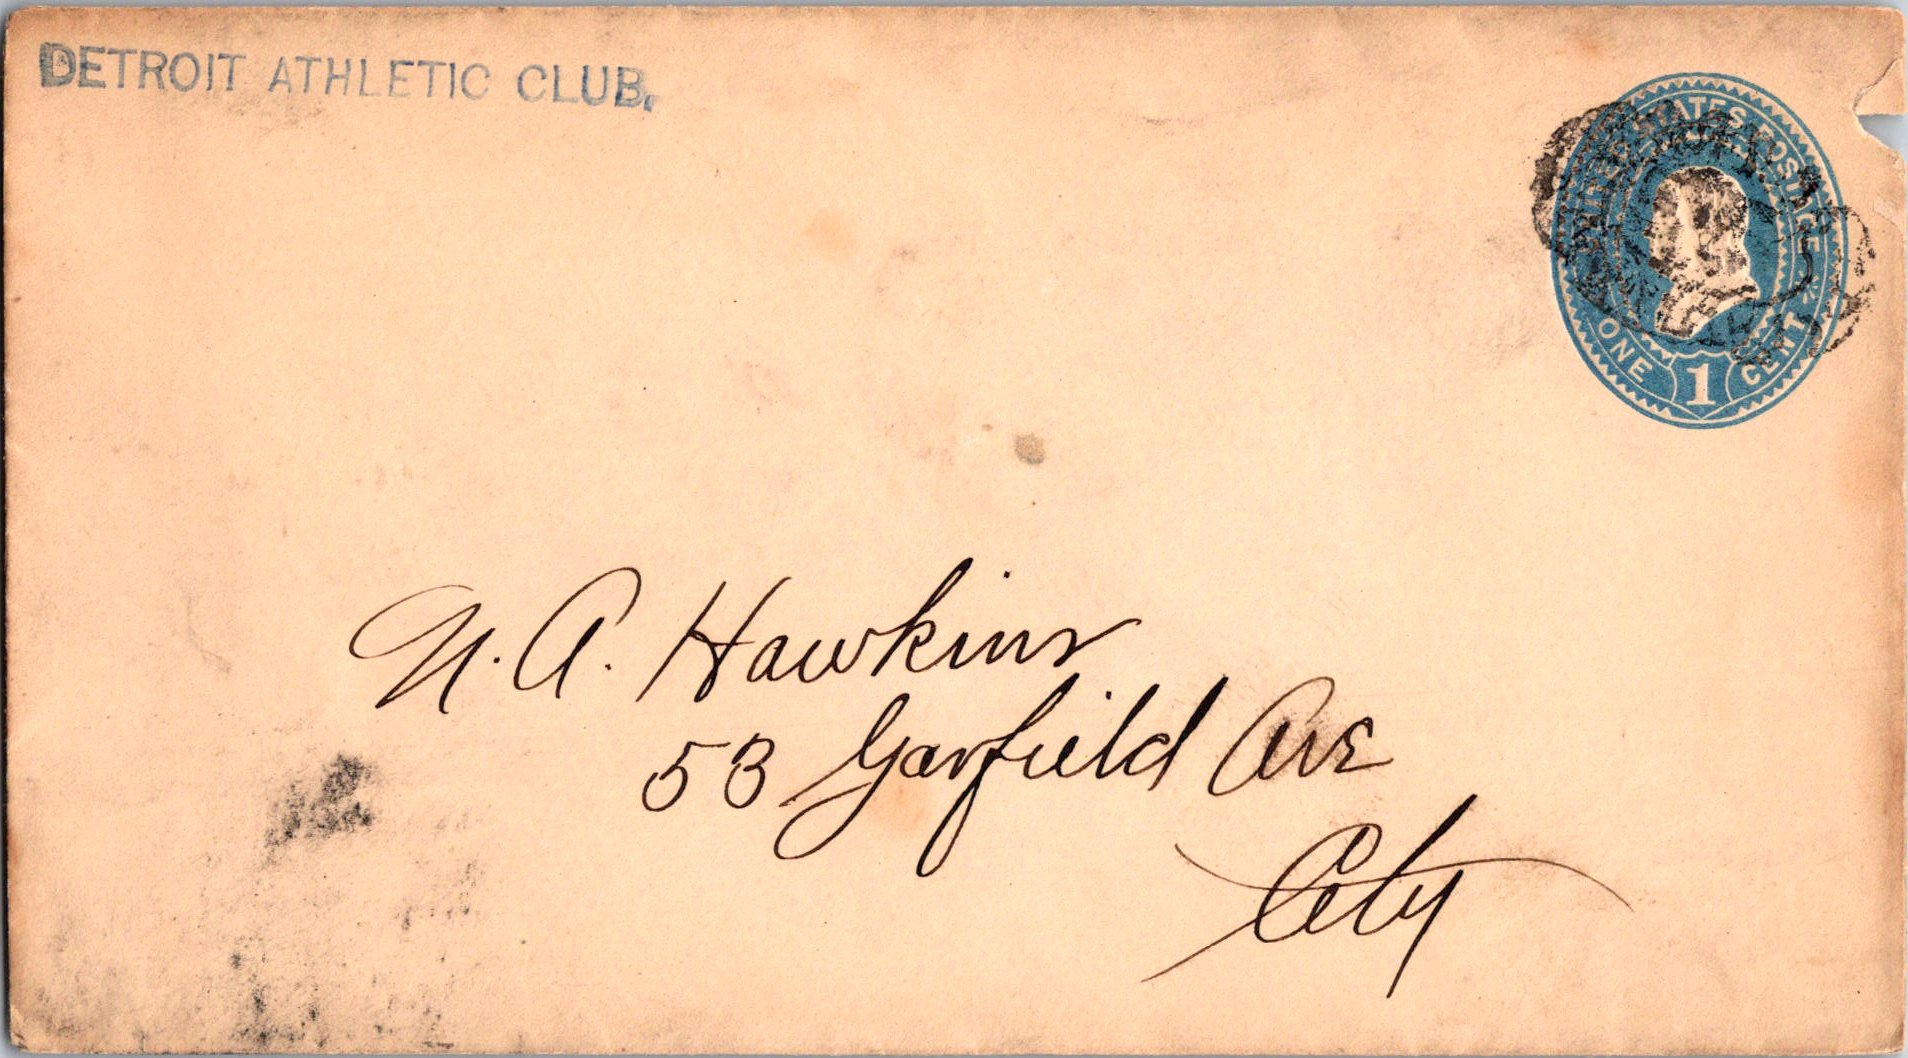 DETROIT ATHLETIC CLUB.
UNITED STATES POSTAGE
ONE 1 CENT
N. A. Hawkins
53 Garfield Ave
City